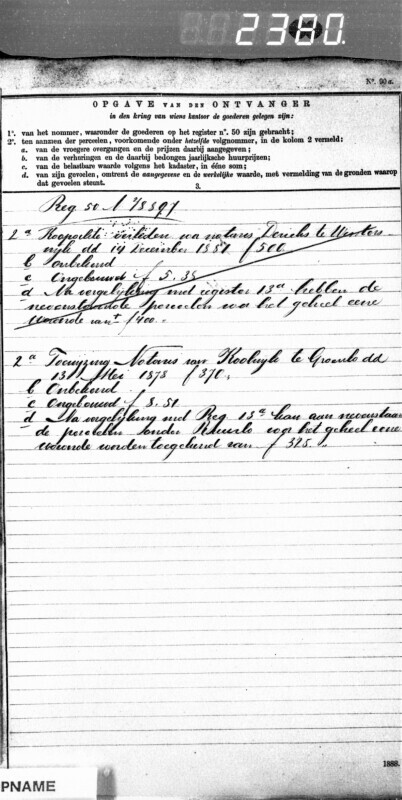 2380.
N°. 90a.
OPGAVE VAN DEN ONTVANGER
in den kring van wiens kantoor de goederen gelegen zijn:
1°. van het nommer, waaronder de goederen op het register n°. 50 zijn gebracht;
2°. ten aanzien der perceelen, voorkomende onder hetzelfde volgnommer, in de kolom 2 vermeld:
a. van de vroegere overgangen en de prijzen daarbij aangegeven;
b. van de verhuringen en de daarbij bedongen jaarlijksche huurprijzen;
c. van de belastbare waarde volgens het kadaster, in ééne som;
d. van zijn gevoelen, omtrent de aangegevene en de werkelijke waarde, met vermelding van de gronden waarop
dat gevoelen steunt.
3.
Reg. 50 N 1/8397
2 a Koopacte verleden van notaris Derichs te Winters
wijk dd 14 December 1851 f 500
b onbekend
c Ongebouwd f 5.35
d Na vergelijking met register 13a hebben de
nevenstaande perceelen voor het geheel eene
waarde van f 400.
2 a Toewijzing Notaris van Groenlo dd
1878 f 370,
b Onbekend
c Ongebouwd f 8.51
d Na vergelijking met Reg. 13a kan aan nevenstaan
de perceelen voor het geheel eene
waarde worden toegekend van f 325.
1888.
PNAME